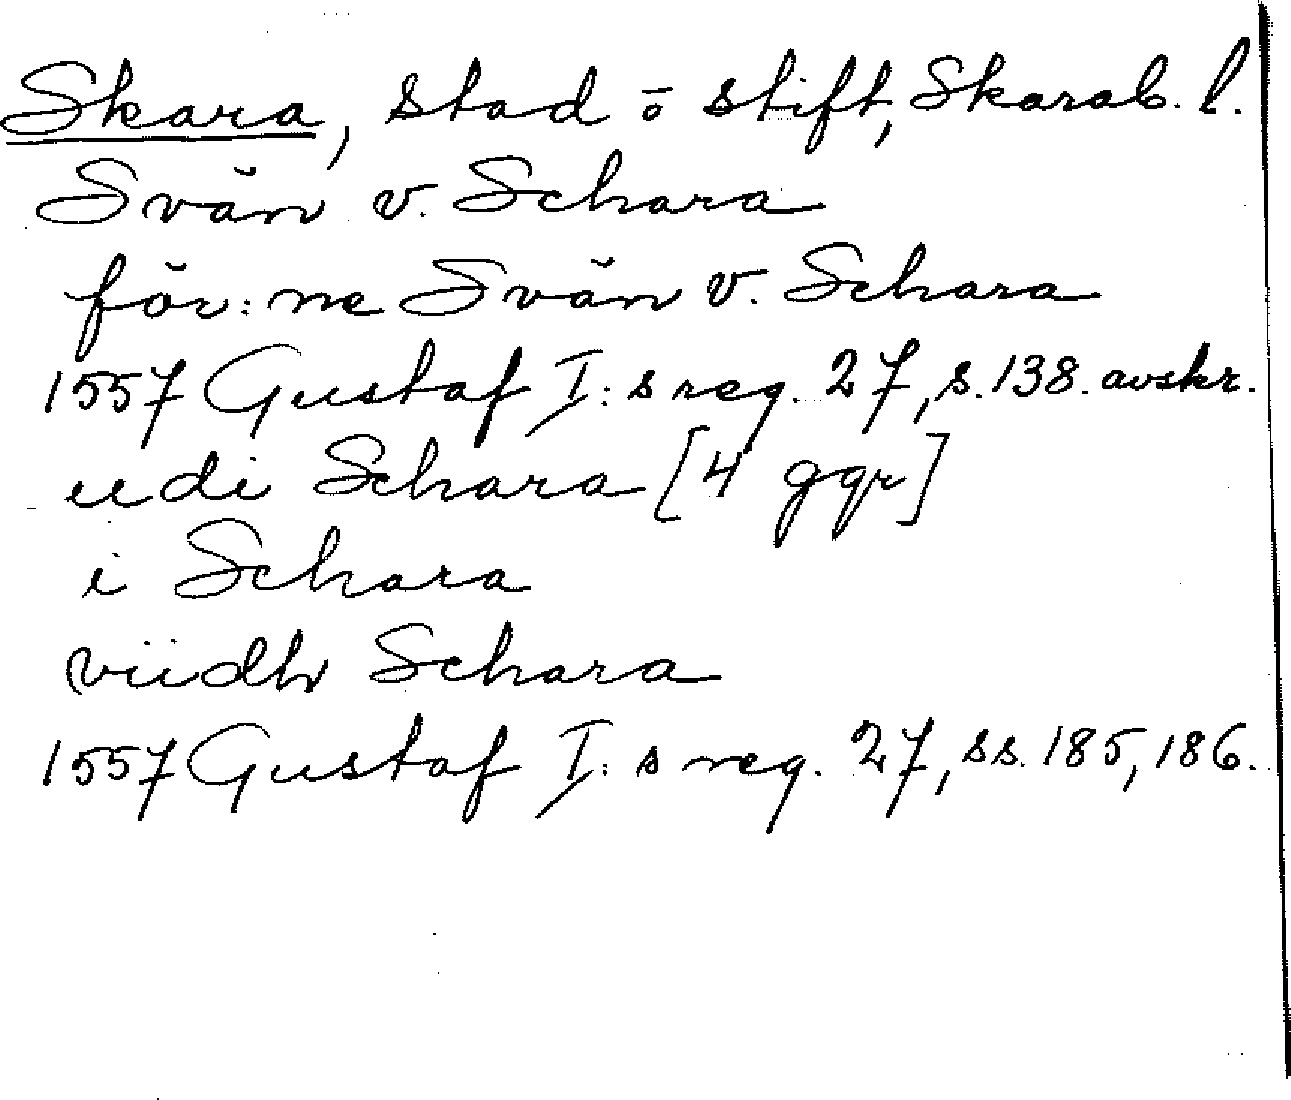 Skara, stad ō stift, Skarab. l.
Svän v. Schara
för: ne Svän v. Schara
1557 Gustaf I: s reg. 27, s. 138. avskr.
udi Schara [4 ggr]
i Schara
viidh Schara
1557 Gustaf I: s reg. 27, ss. 185, 186.